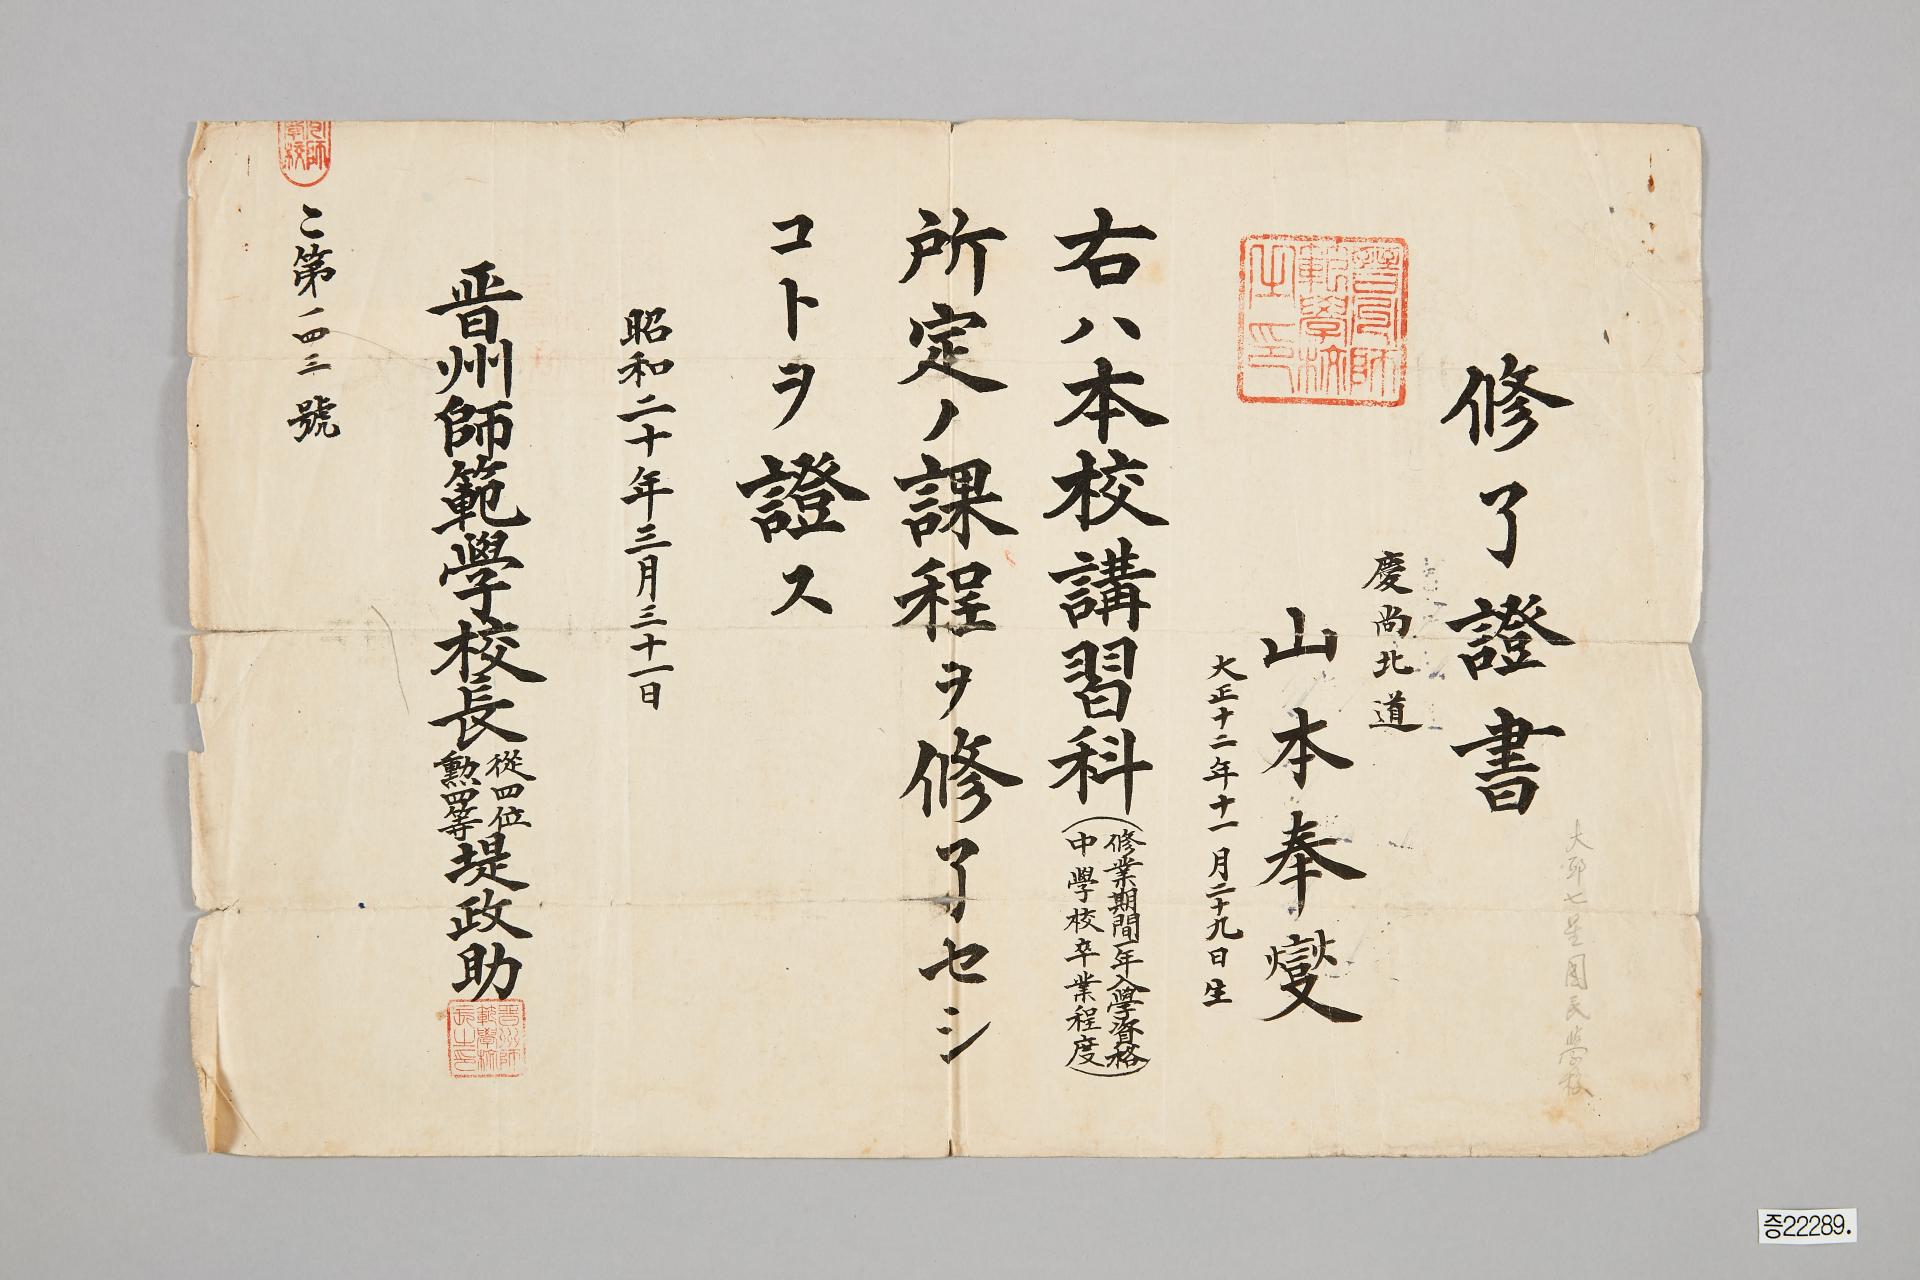 修了證書
慶尚北道
山本奉燮
大正十二年十一月二十九日生
右ハ本校講習科(修業期間一年入學資格
中學校卒業程度)
所定ノ課程ヲ修了セシ
コトヲ證ス
昭和二十年三月三十一日
晋州師範學校長從四位
勲四等堤政助
こ第一四三號
大邱七星國民學校
晋州師範學校之印
晋州師範學校長之印
증22289.